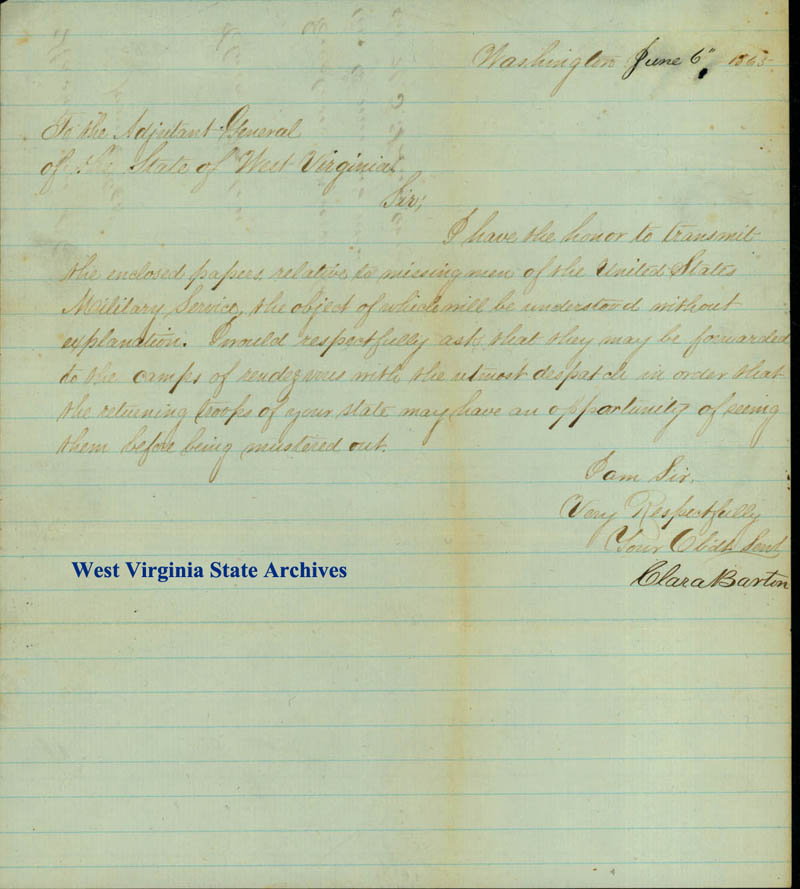 Washington June 6" 1865
To the Adjutant General
of the State of West Virginia
Sir;
I have the honor to transmit
the enclosed papers, relative to missing men of the United States
Military Service, the object of which will be understood without
explanation. I would respectfully ask that they may be forwarded
to the camps of rendezvous with the utmost despatch in order that
the returning troops of your state may have an opportunity of seeing
them before being mustered out.
I am Sir.
Very Respectfully
Your Obdt Servt
Clara Barton
West Virginia State Archives